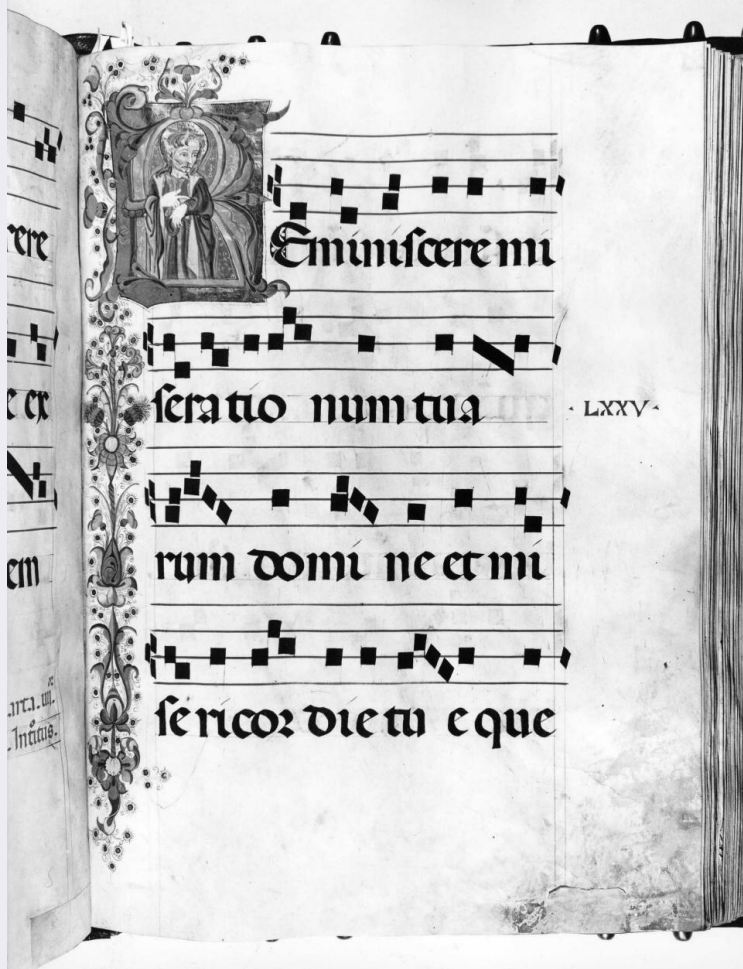 rere
e ex
em
Intitus.
Reminiscere mi
seratio num tua
· LXXV ·
rum domi ne et mi
se ricor die tu e que